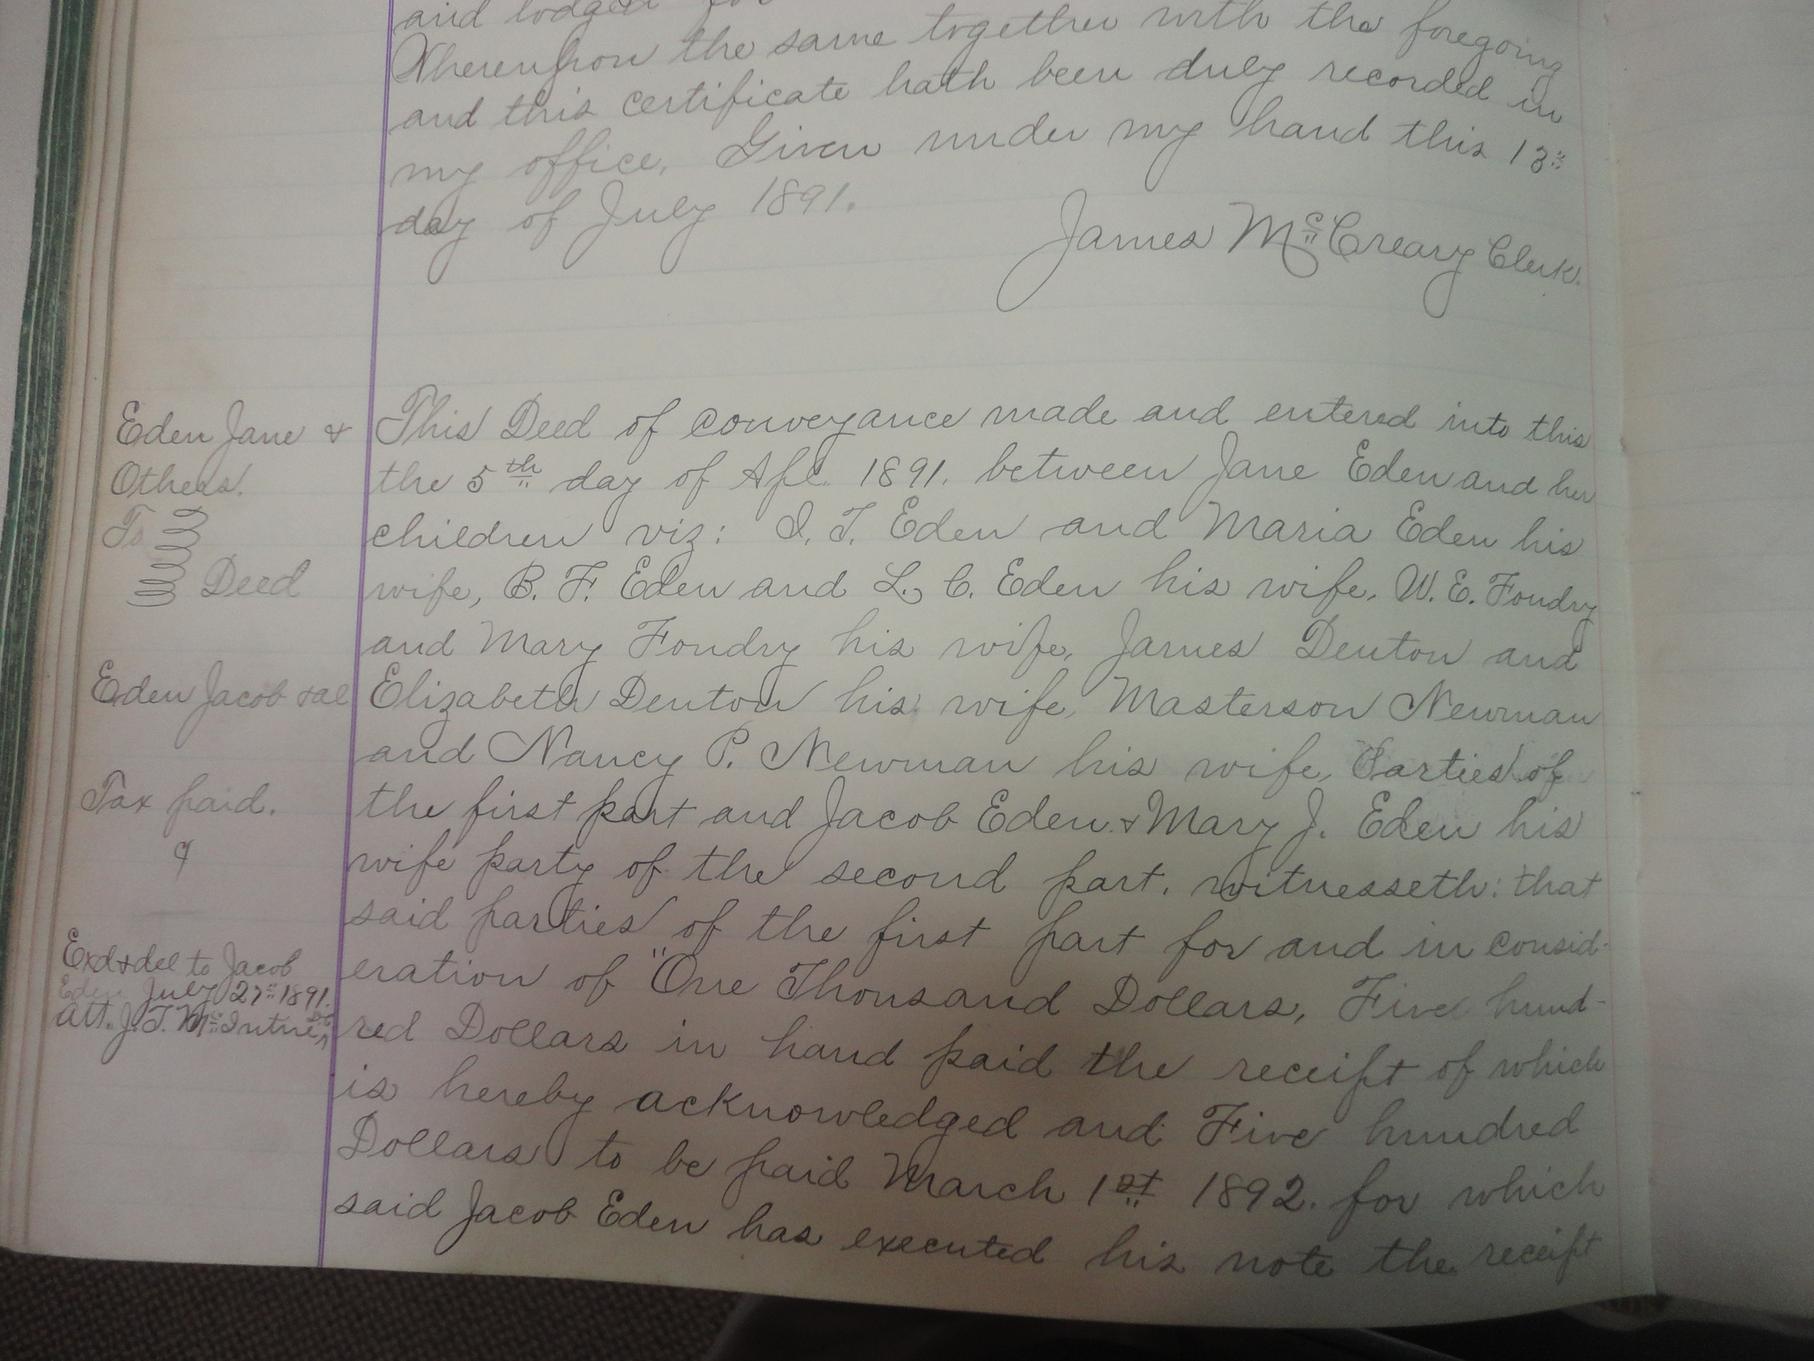 and lodged for
Whereupon the same together with the foregoing
and this certificate hath been duly recorded in
my office. Given under my hand this 13"
day of July 1891.
James McCreary Clerk.
Eden Jane &
Others.
To
Deed
Eden Jacob & al
Tax paid.
Exd & del to Jacob
Eden July 27" 1891.
Att. J. T.
This Deed of conveyance made and entered into this
the 5th day of Apl. 1891. between Jane Eden and her
children viz: I. T. Eden and Maria Eden his
wife, B. F. Eden and L. C. Eden his wife. W. E. Foudry
and Mary Foudry his wife, James Denton and
Elizabeth Denton his wife, Masterson Newman
and Nancy P. Newman his wife, Parties of
the first part and Jacob Eden & Mary J. Eden his
wife party of the second part. witnesseth: that
said parties of the first part for and in consid-
eration of "One Thousand Dollars, Five hund-
red Dollars in hand paid the receipt of which
is hereby acknowledged and Five hundred
Dollars to be paid March 1st 1892. for which
said Jacob Eden has executed his note the receipt